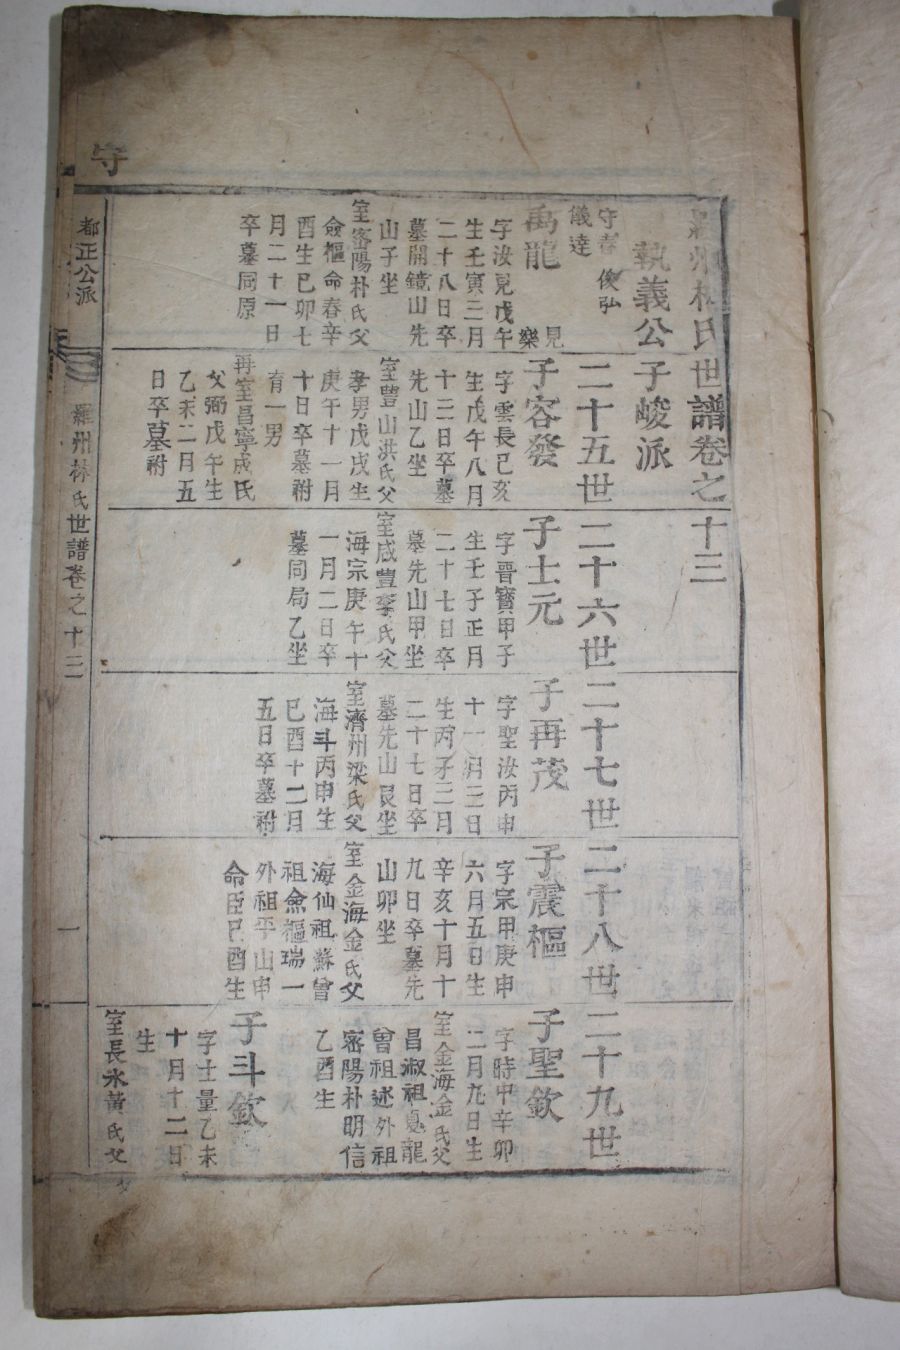 羅州林氏世譜卷之十三
執義公子峻派
二十五世
二十六世
二十七世
二十八世
二十九世
守春 俊弘
儀達
禹龍 見樂
字汝見戊午
生壬寅三月
二十八日卒
墓開鏡山先
山子坐
室密陽朴氏父
僉樞命春辛
酉生己卯七
月二十一日
卒墓同原
子容發
字雲長己亥
生戊午八月
十三日卒墓
先山乙坐
室豐山洪氏父
孝男戊戌生
庚午十一月
十日卒墓祔
有一男
再室昌寧成氏
父弼戊午生
乙未二月五
日卒墓祔
子士元
字晋寶甲子
生壬子正月
二十七日卒
墓先山甲坐
室咸豐李氏父
海宗庚午十
一月二日卒
墓同局乙坐
子再茂
字聖汝丙申
十一月三日
生丙子三月
二十七日卒
墓先山艮坐
室濟州梁氏父
海斗丙申生
巳酉十二月
五日卒墓祔
子震樞
字宗甲庚申
六月五日生
辛亥十月十
九日卒墓先
山卯坐
室金海金氏父
海仙祖蘇曾
祖僉樞瑞一
外祖平山申
命臣己酉生
子聖欽
字時中辛卯
二月九日生
室金海金氏父
昌淑祖夏龍
曾祖述外祖
密陽朴明信
乙酉生
子斗欽
字士量乙未
十月十二日
生
室長水黃氏父
守
都正公派
羅州林氏世譜卷之十三
一